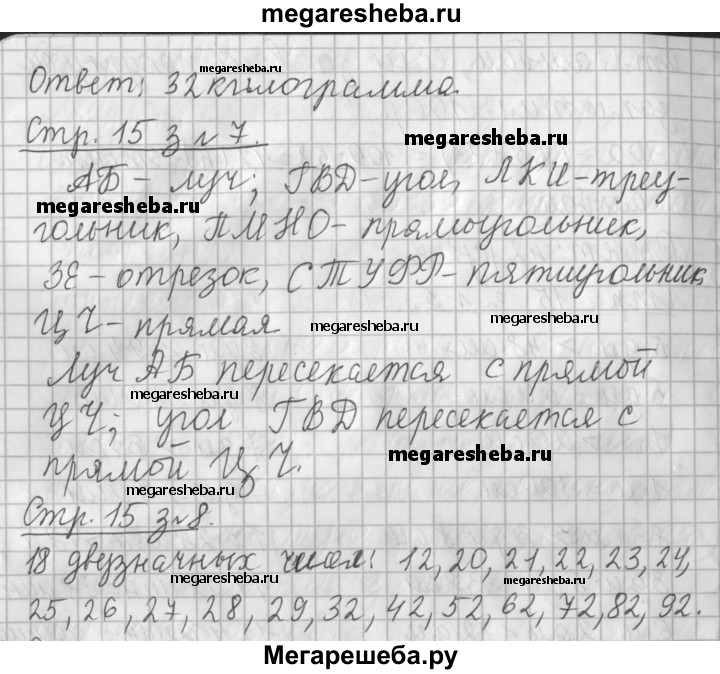 megaresheba.ru
megaresheba.ru
Ответ: 32 килограмма.
Стр. 15 з № 7.
megaresheba.ru
АБ – луч; ГВД – угол, ЛКИ – треу-
megaresheba.ru
гольник, ПМНО – прямоугольник,
ЗЕ – отрезок, СТУФР – пятиугольник,
ЦЧ – прямая
megaresheba.ru megaresheba.ru
Луч АБ пересекается с прямой
megaresheba.ru
ЦЧ; угол ГВД пересекается с
прямой ЦЧ.
megaresheba.ru
megaresheba.ru
Стр. 15 з № 8.
18 двузначных чисел: 12, 20, 21, 22, 23, 24,
megaresheba.ru megaresheba.ru
25, 26, 27, 28, 29, 32, 42, 52, 62, 72, 82, 92.
Мегарешеба.ру